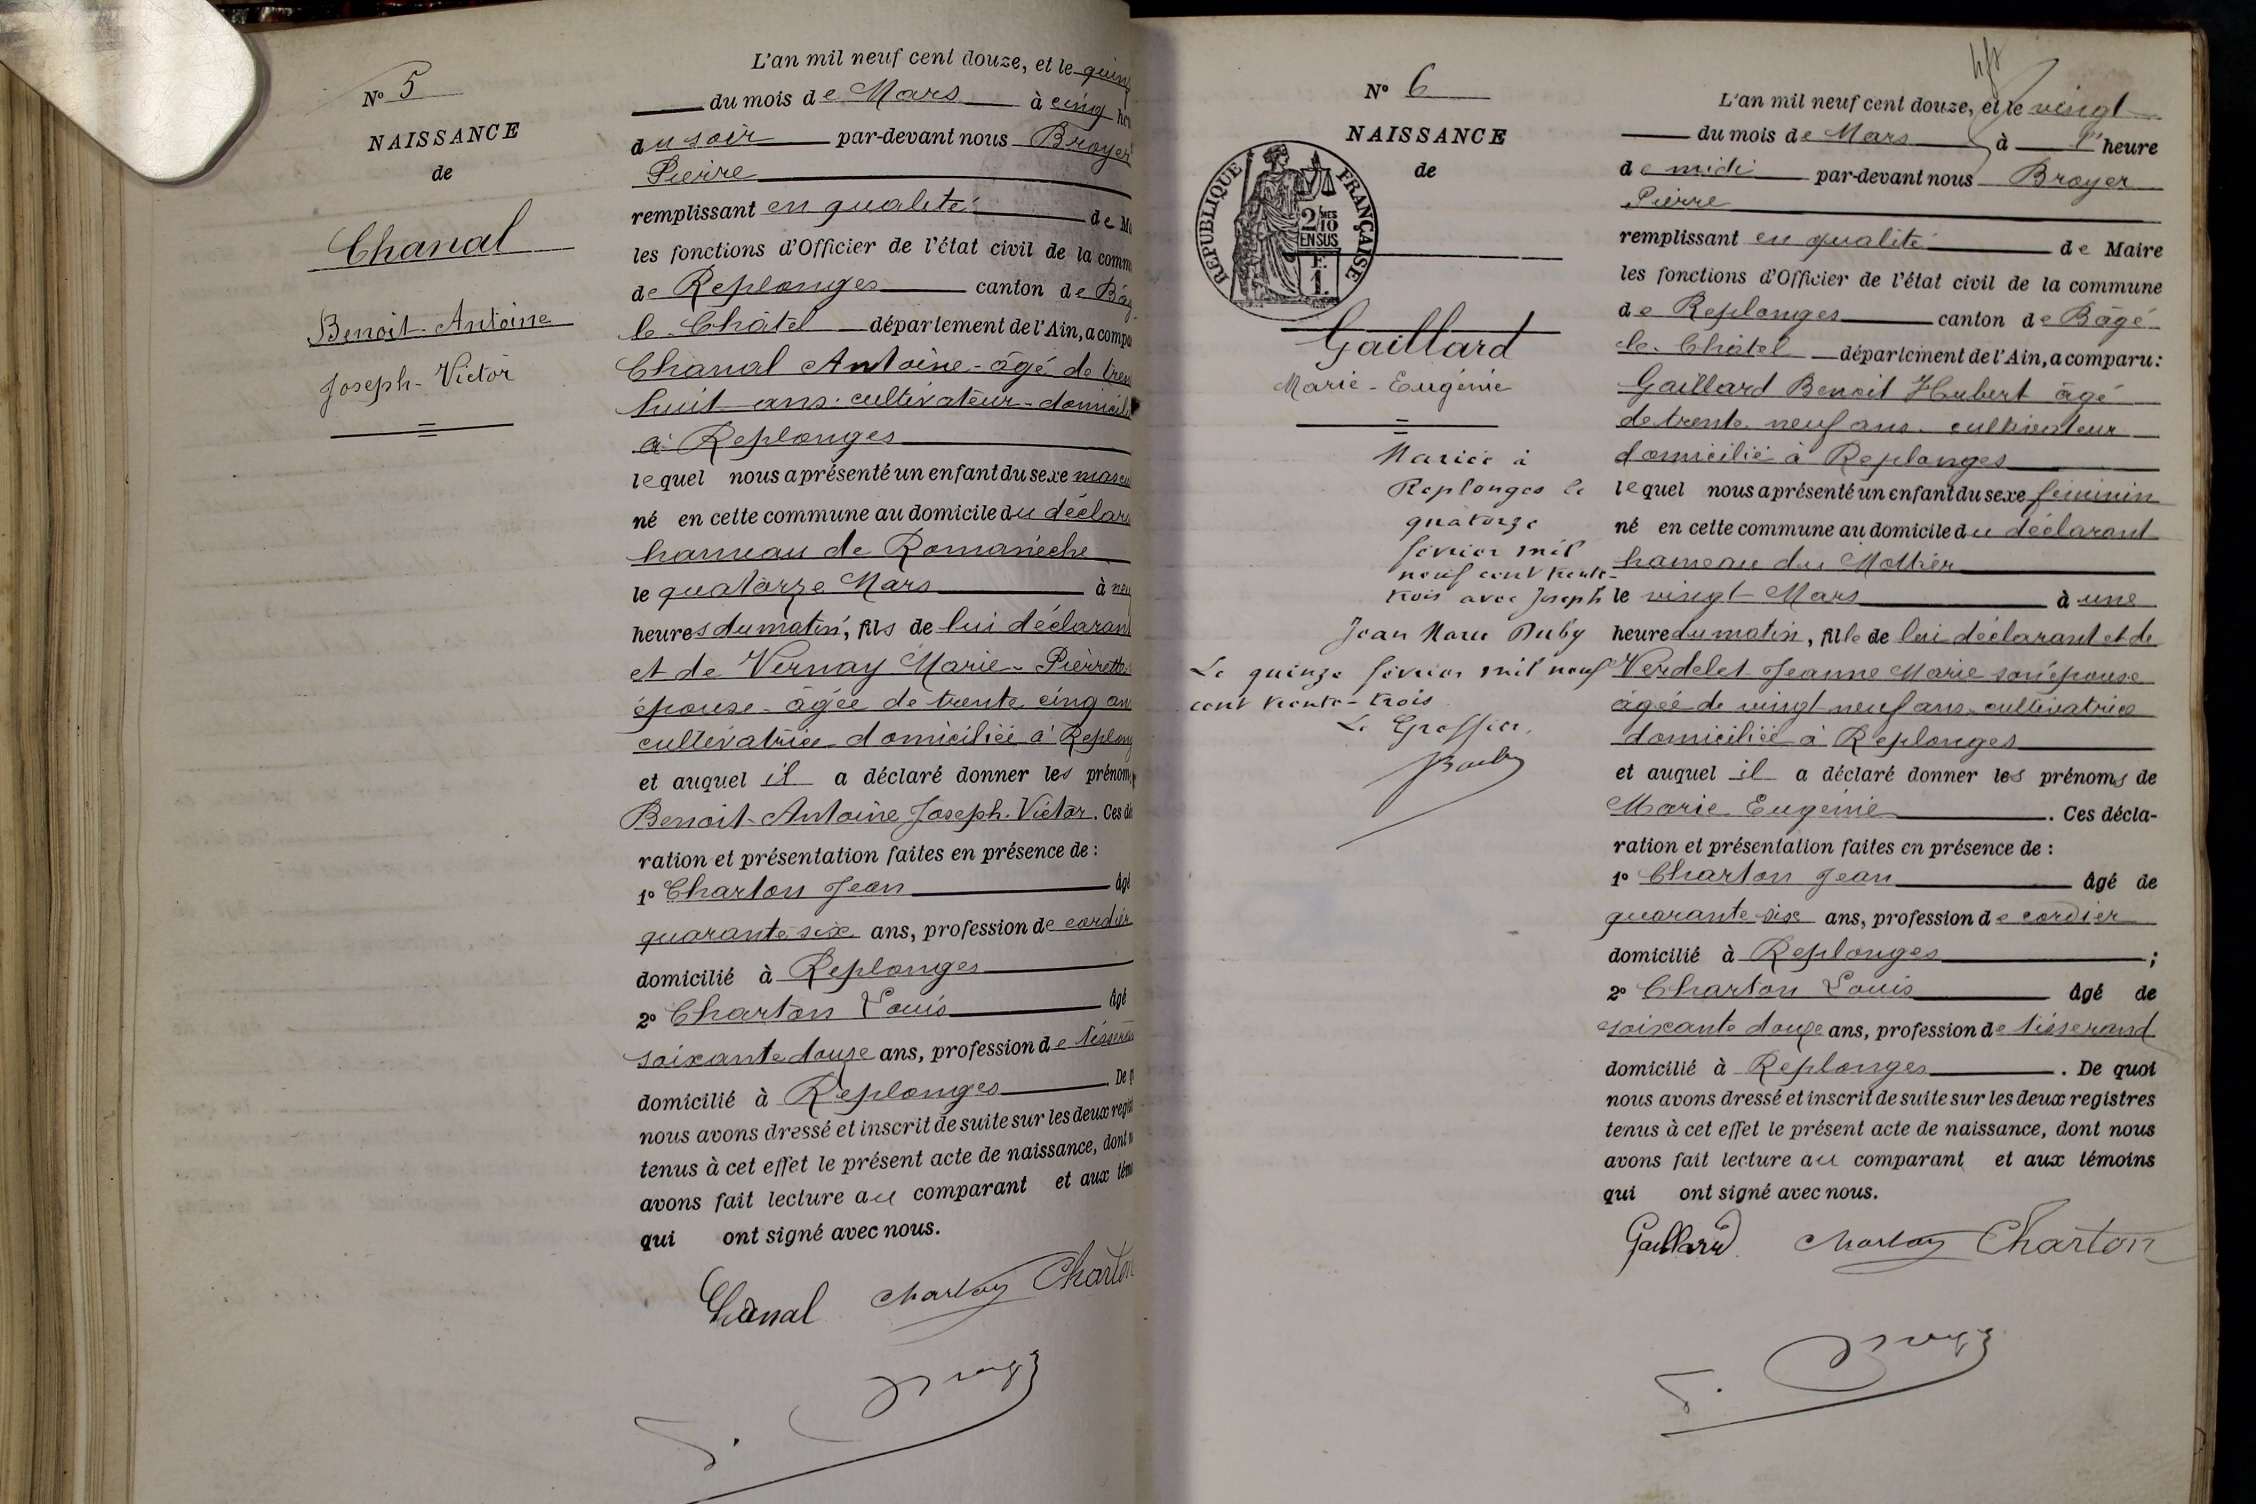 N° 5
NAISSANCE
de
Chanal
Benoit-Antoine
Joseph-Victor
L'an mil neuf cent douze, et le quin
du mois de Mars à cinq heu
du soir par-devant nous Broyer
Pierre
remplissant en qualité de Ma
les fonctions d'Officier de l'état civil de la comm
de Replonges canton de Bâg
le-Châtel département de l'Ain, a compa
Chanal Antoine-âgé de tren
huit ans-cultivateur-domicili
à Replonges
lequel nous a présenté un enfant du sexe mascu
né en cette commune au domicile du déclara
hameau de Romanèche
le quatorze Mars à neu
heures du matin, fils de lui déclarant
et de Vernay Marie-Pierrette
épouse-âgée de trente cinq ans
cultivatrice domiciliée à Replong
et auquel il a déclaré donner les prénoms
Benoit-Antoine Joseph-Victor. Ces dé
ration et présentation faites en présence de :
1° Charton Jean âgé
quarante six ans, profession de cordier
domicilié à Replonges
2° Charton Louis âgé
soixante douze ans, profession de tisseran
domicilié à Replonges De q
nous avons dressé et inscrit de suite sur les deux regist
tenus à cet effet le présent acte de naissance, dont n
avons fait lecture au comparant et aux tém
qui ont signé avec nous.
Chanal Charton Charton
N° 6
NAISSANCE
de
RÉPUBLIQUE FRANÇAISE
2/10 MES
EN SUS
F.
1.
Gaillard
Marie-Eugénie
Mariée à
Replonges le
quatorze
février mil
neuf cent trente-
trois avec Joseph
Jean Marie Duby
Le quinze février mil neuf
cent trente-trois
Le Greffier,
L'an mil neuf cent douze, et le vingt
du mois de Mars à 1 heure
de midi par-devant nous Broyer
Pierre
remplissant en qualité de Maire
les fonctions d'Officier de l'état civil de la commune
de Replonges canton de Bâgé
le-Châtel département de l'Ain, a comparu :
Gaillard Benoit Hubert âgé
de trente neuf ans-cultivateur
domicilié à Replonges
lequel nous a présenté un enfant du sexe féminin
né en cette commune au domicile du déclarant
hameau du Mottier
le vingt Mars à une
heure du matin, fille de lui déclarant et de
Verdelet Jeanne Marie son épouse
âgée de vingt neuf ans-cultivatrice
domiciliée à Replonges
et auquel il a déclaré donner les prénoms de
Marie Eugénie . Ces décla-
ration et présentation faites en présence de :
1° Charton Jean âgé de
quarante-six ans, profession de cordier
domicilié à Replonges ;
2° Charton Louis âgé de
soixante douze ans, profession de tisserand
domicilié à Replonges . De quoi
nous avons dressé et inscrit de suite sur les deux registres
tenus à cet effet le présent acte de naissance, dont nous
avons fait lecture au comparant et aux témoins
qui ont signé avec nous.
Gaillard Charton Charton